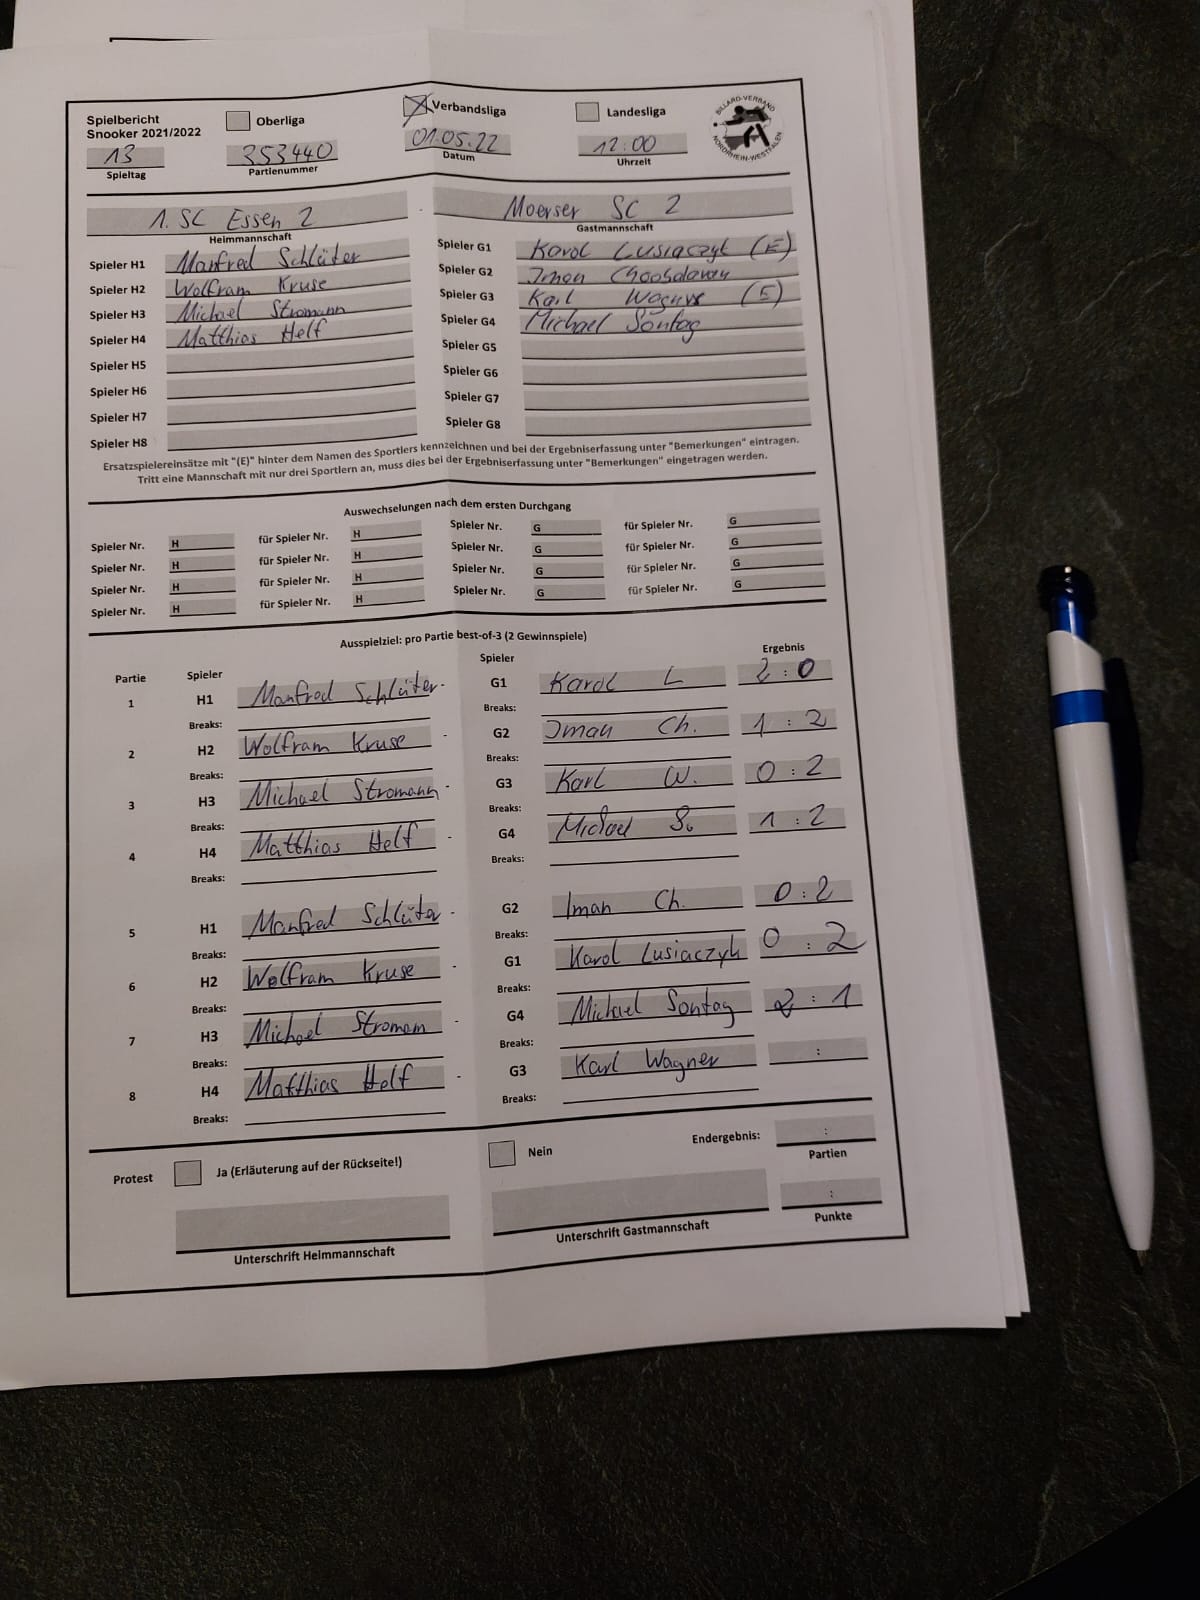 Spielbericht
Snooker 2021/2022
Oberliga
Verbandsliga
Landesliga
BILLARD-VERBAND
NORDRHEIN-WESTFALEN
13
353440
01.05.22
12:00
Spieltag
Partienummer
Datum
Uhrzeit
1. SC Essen 2
Moerser SC 2
Heimmannschaft
Gastmannschaft
Spieler H1 Manfred Schlüter
Spieler G1 Karol Lusiaczyk (E)
Spieler H2 Wolfram Kruse
Spieler G2 Iman
Spieler H3 Michael Stromann
Spieler G3 Karl Wagner (E)
Spieler H4 Matthias Helf
Spieler G4 Michael Sontag
Spieler H5
Spieler G5
Spieler H6
Spieler G6
Spieler H7
Spieler G7
Spieler H8
Spieler G8
Ersatzspielereinsätze mit "(E)" hinter dem Namen des Sportlers kennzeichnen und bei der Ergebniserfassung unter "Bemerkungen" eintragen.
Tritt eine Mannschaft mit nur drei Sportlern an, muss dies bei der Ergebniserfassung unter "Bemerkungen" eingetragen werden.
Auswechselungen nach dem ersten Durchgang
Spieler Nr. H für Spieler Nr. H Spieler Nr. G für Spieler Nr. G
Spieler Nr. H für Spieler Nr. H Spieler Nr. G für Spieler Nr. G
Spieler Nr. H für Spieler Nr. H Spieler Nr. G für Spieler Nr. G
Spieler Nr. H für Spieler Nr. H Spieler Nr. G für Spieler Nr. G
Ausspielziel: pro Partie best-of-3 (2 Gewinnspiele)
Partie Spieler Spieler Ergebnis
1 H1 Manfred Schlüter - G1 Karol L 2 : 0
Breaks: Breaks:
2 H2 Wolfram Kruse - G2 Iman Ch. 1 : 2
Breaks: Breaks:
3 H3 Michael Stromann - G3 Karl W. 0 : 2
Breaks: Breaks:
4 H4 Matthias Helf - G4 Michael S. 1 : 2
Breaks: Breaks:
5 H1 Manfred Schlüter - G2 Iman Ch. 0 : 2
Breaks: Breaks:
6 H2 Wolfram Kruse - G1 Karol Lusiaczyk 0 : 2
Breaks: Breaks:
7 H3 Michael Stromann - G4 Michael Sontag 2 : 1
Breaks: Breaks:
8 H4 Matthias Helf - G3 Karl Wagner :
Breaks: Breaks:
Protest Ja (Erläuterung auf der Rückseite!) Nein Endergebnis: :
Partien
:
Unterschrift Heimmannschaft Unterschrift Gastmannschaft Punkte